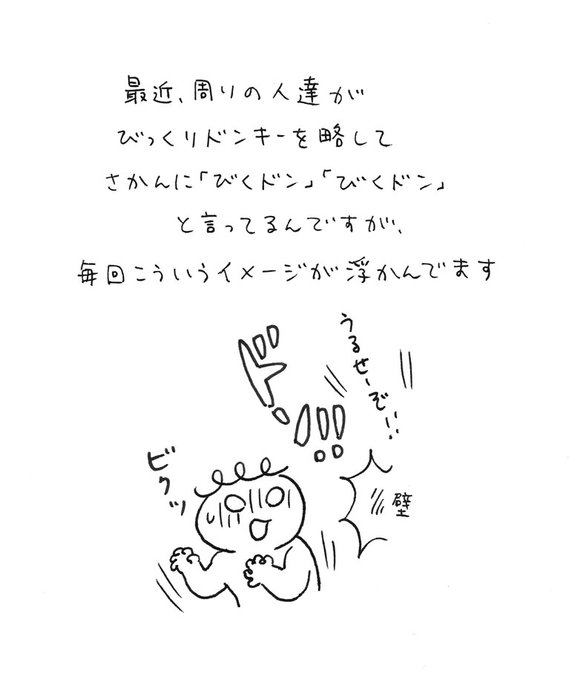 最近、周りの人達が
びっくりドンキーを略して
さかんに「びくドン」「びくドン」
と言ってるんですが、
毎回こういうイメージが浮かんでます
うるせーぞ!!
ドン!!!
ビクッ
壁